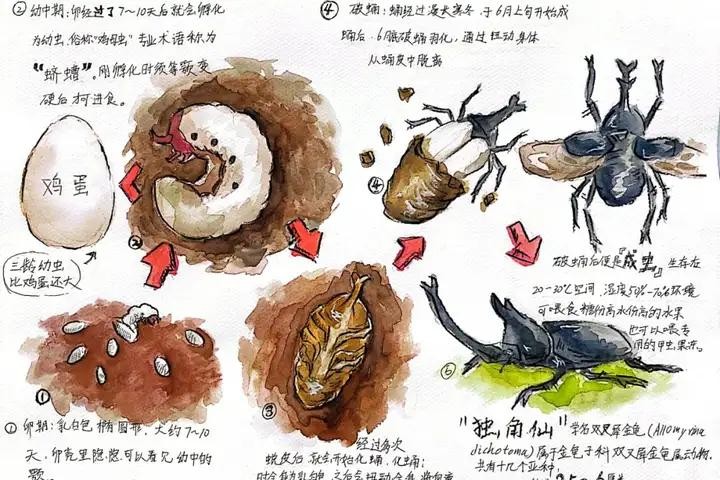 ② 幼中期:卵经过了7~10天后就会孵化
为幼虫,俗称"鸡母虫"专业术语称为
"蛴螬"。刚孵化时须等颚变
硬后才可进食。
④ 破蛹:蛹经过漫长寒冬,于6月上旬开始成
蛹后,6脚破蛹羽化,通过扭动身体
从蛹皮中脱离
鸡蛋
三龄幼虫
比鸡蛋还大
②
④
破蛹后便是『成虫』生存在
20-30℃空间,湿度50%-70%环境
可喂食糖份高水份高的水果
也可以喂专
用的甲虫果冻。
①
③
⑤
① 卵期:乳白色椭圆形,大约7~10
天,卵壳里隐隐可以看见幼中的
颚
经过多次
蜕皮后就会开始化蛹,化蛹
"独角仙"学名双叉犀金龟(Allomyrina
dichotoma)属于金龟子科双叉犀金龟属动物,
共有十几个亚种,